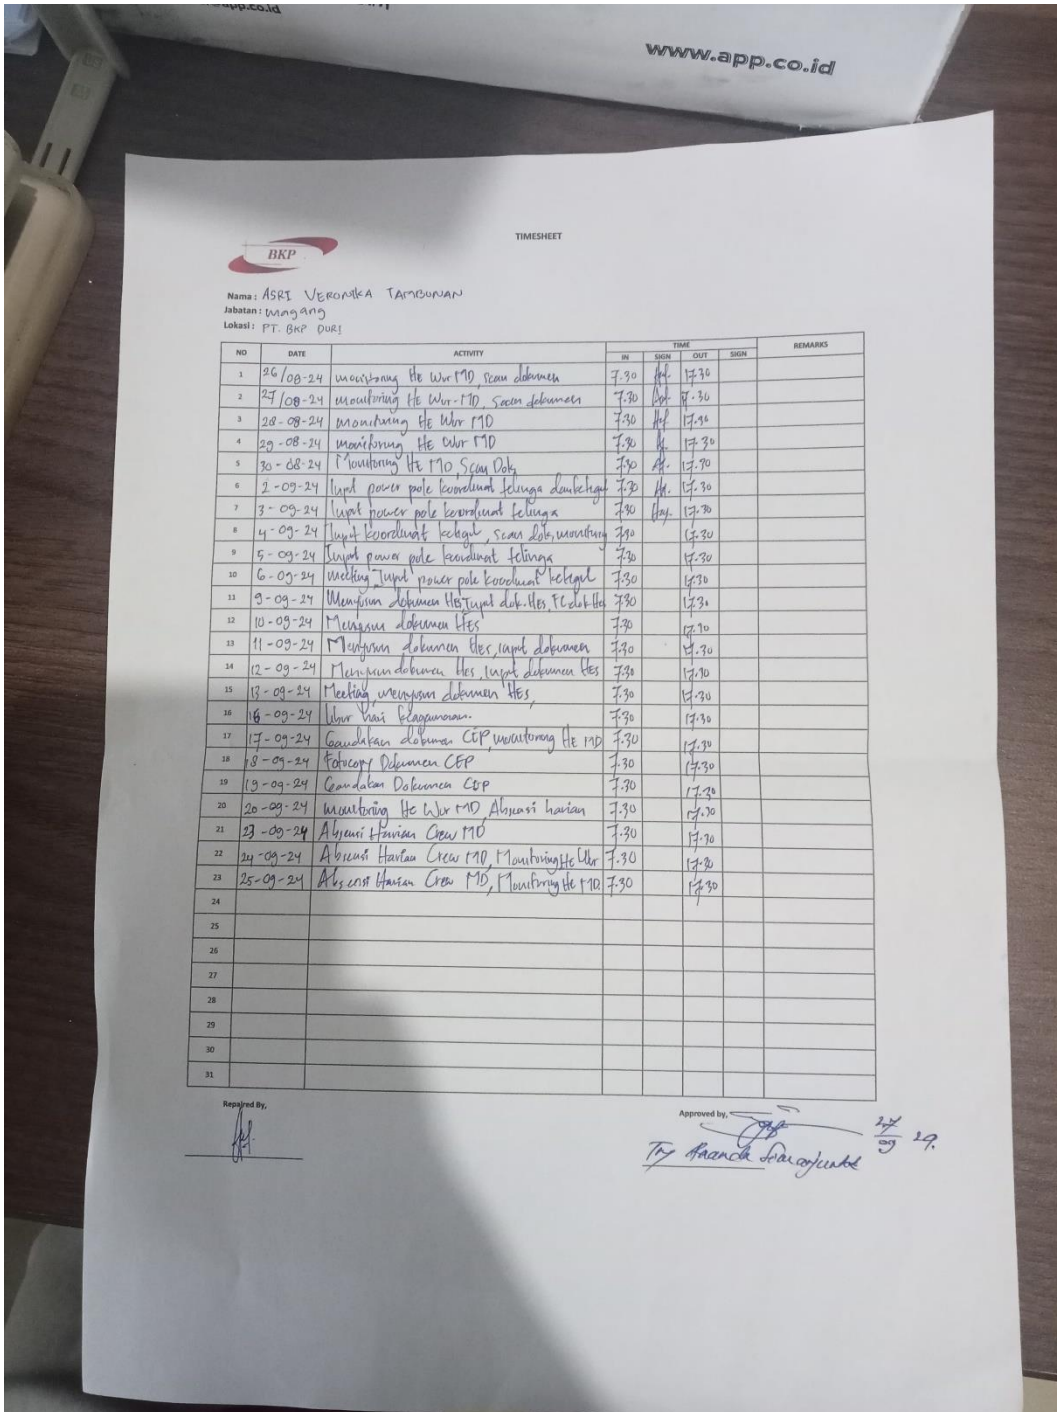 www.app.co.id
TIMESHEET
BKP
Nama : ASRI VERONIKA TAMBUNAN
Jabatan : Magang
Lokasi : PT. BKP DURI
NO DATE ACTIVITY TIME REMARKS
IN SIGN OUT SIGN
1 26/08-24 monitoring HE Wor MD, scan dokumen 7.30 17.30
2 27/08-24 monitoring HE Wor-MD, Scan dokumen 7.30 17.30
3 28-08-24 monitoring HE Wor MD 7.30 17.30
4 29-08-24 monitoring HE Wor MD 7.30 17.30
5 30-08-24 Monitoring HE MD, Scan Dok, 7.30 17.30
6 2-09-24 Input power pole koordinat telinga 7.30 17.30
7 3-09-24 Input power pole koordinat telinga 7.30 17.30
8 4-09-24 Input koordinat scan dok, monitoring 7.30 17.30
9 5-09-24 Input power pole koordinat telinga 7.30 17.30
10 6-09-24 Meeting, Input power pole koordinat 7.30 17.30
11 9-09-24 Menyusun dokumen HES, Input dok. Hes, FC dok Hes 7.30 17.30
12 10-09-24 Menyusun dokumen HES 7.30 17.30
13 11-09-24 Menyusun dokumen Hes, input dokumen 7.30 17.30
14 12-09-24 Menyusun dokumen Hes, input dokumen HES 7.30 17.30
15 13-09-24 Meeting, menyusun dokumen HES, 7.30 17.30
16 16-09-24 libur hari keagamaan. 7.30 17.30
17 17-09-24 Gandakan dokumen CEP, monitoring HE MD 7.30 17.30
18 18-09-24 Fotocopy Dokumen CEP 7.30 17.30
19 19-09-24 Gandakan Dokumen CEP 7.30 17.30
20 20-09-24 monitoring He Wor MD, Absensi harian 7.30 17.30
21 23-09-24 Absensi Harian Crew MD 7.30 17.30
22 24-09-24 Absensi Harian Crew MD, Monitoring He Wor 7.30 17.30
23 25-09-24 Absensi Harian Crew MD, Monitoring He MD. 7.30 17.30
24
25
26
27
28
29
30
31
Repaired By,
Approved by,
27
09 24.